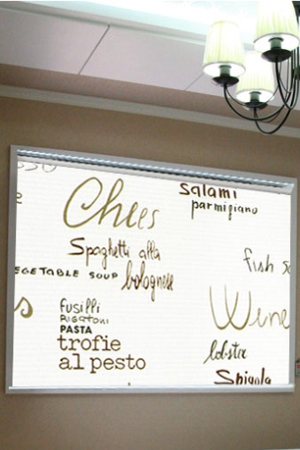 Salami
parmigiano
Chees
Spaghetti alla
bolognese
fish
EGETABLE SOUP
fusilli
RIGATONI
PASTA
trofie
al pesto
Wine
lobster
Spigola